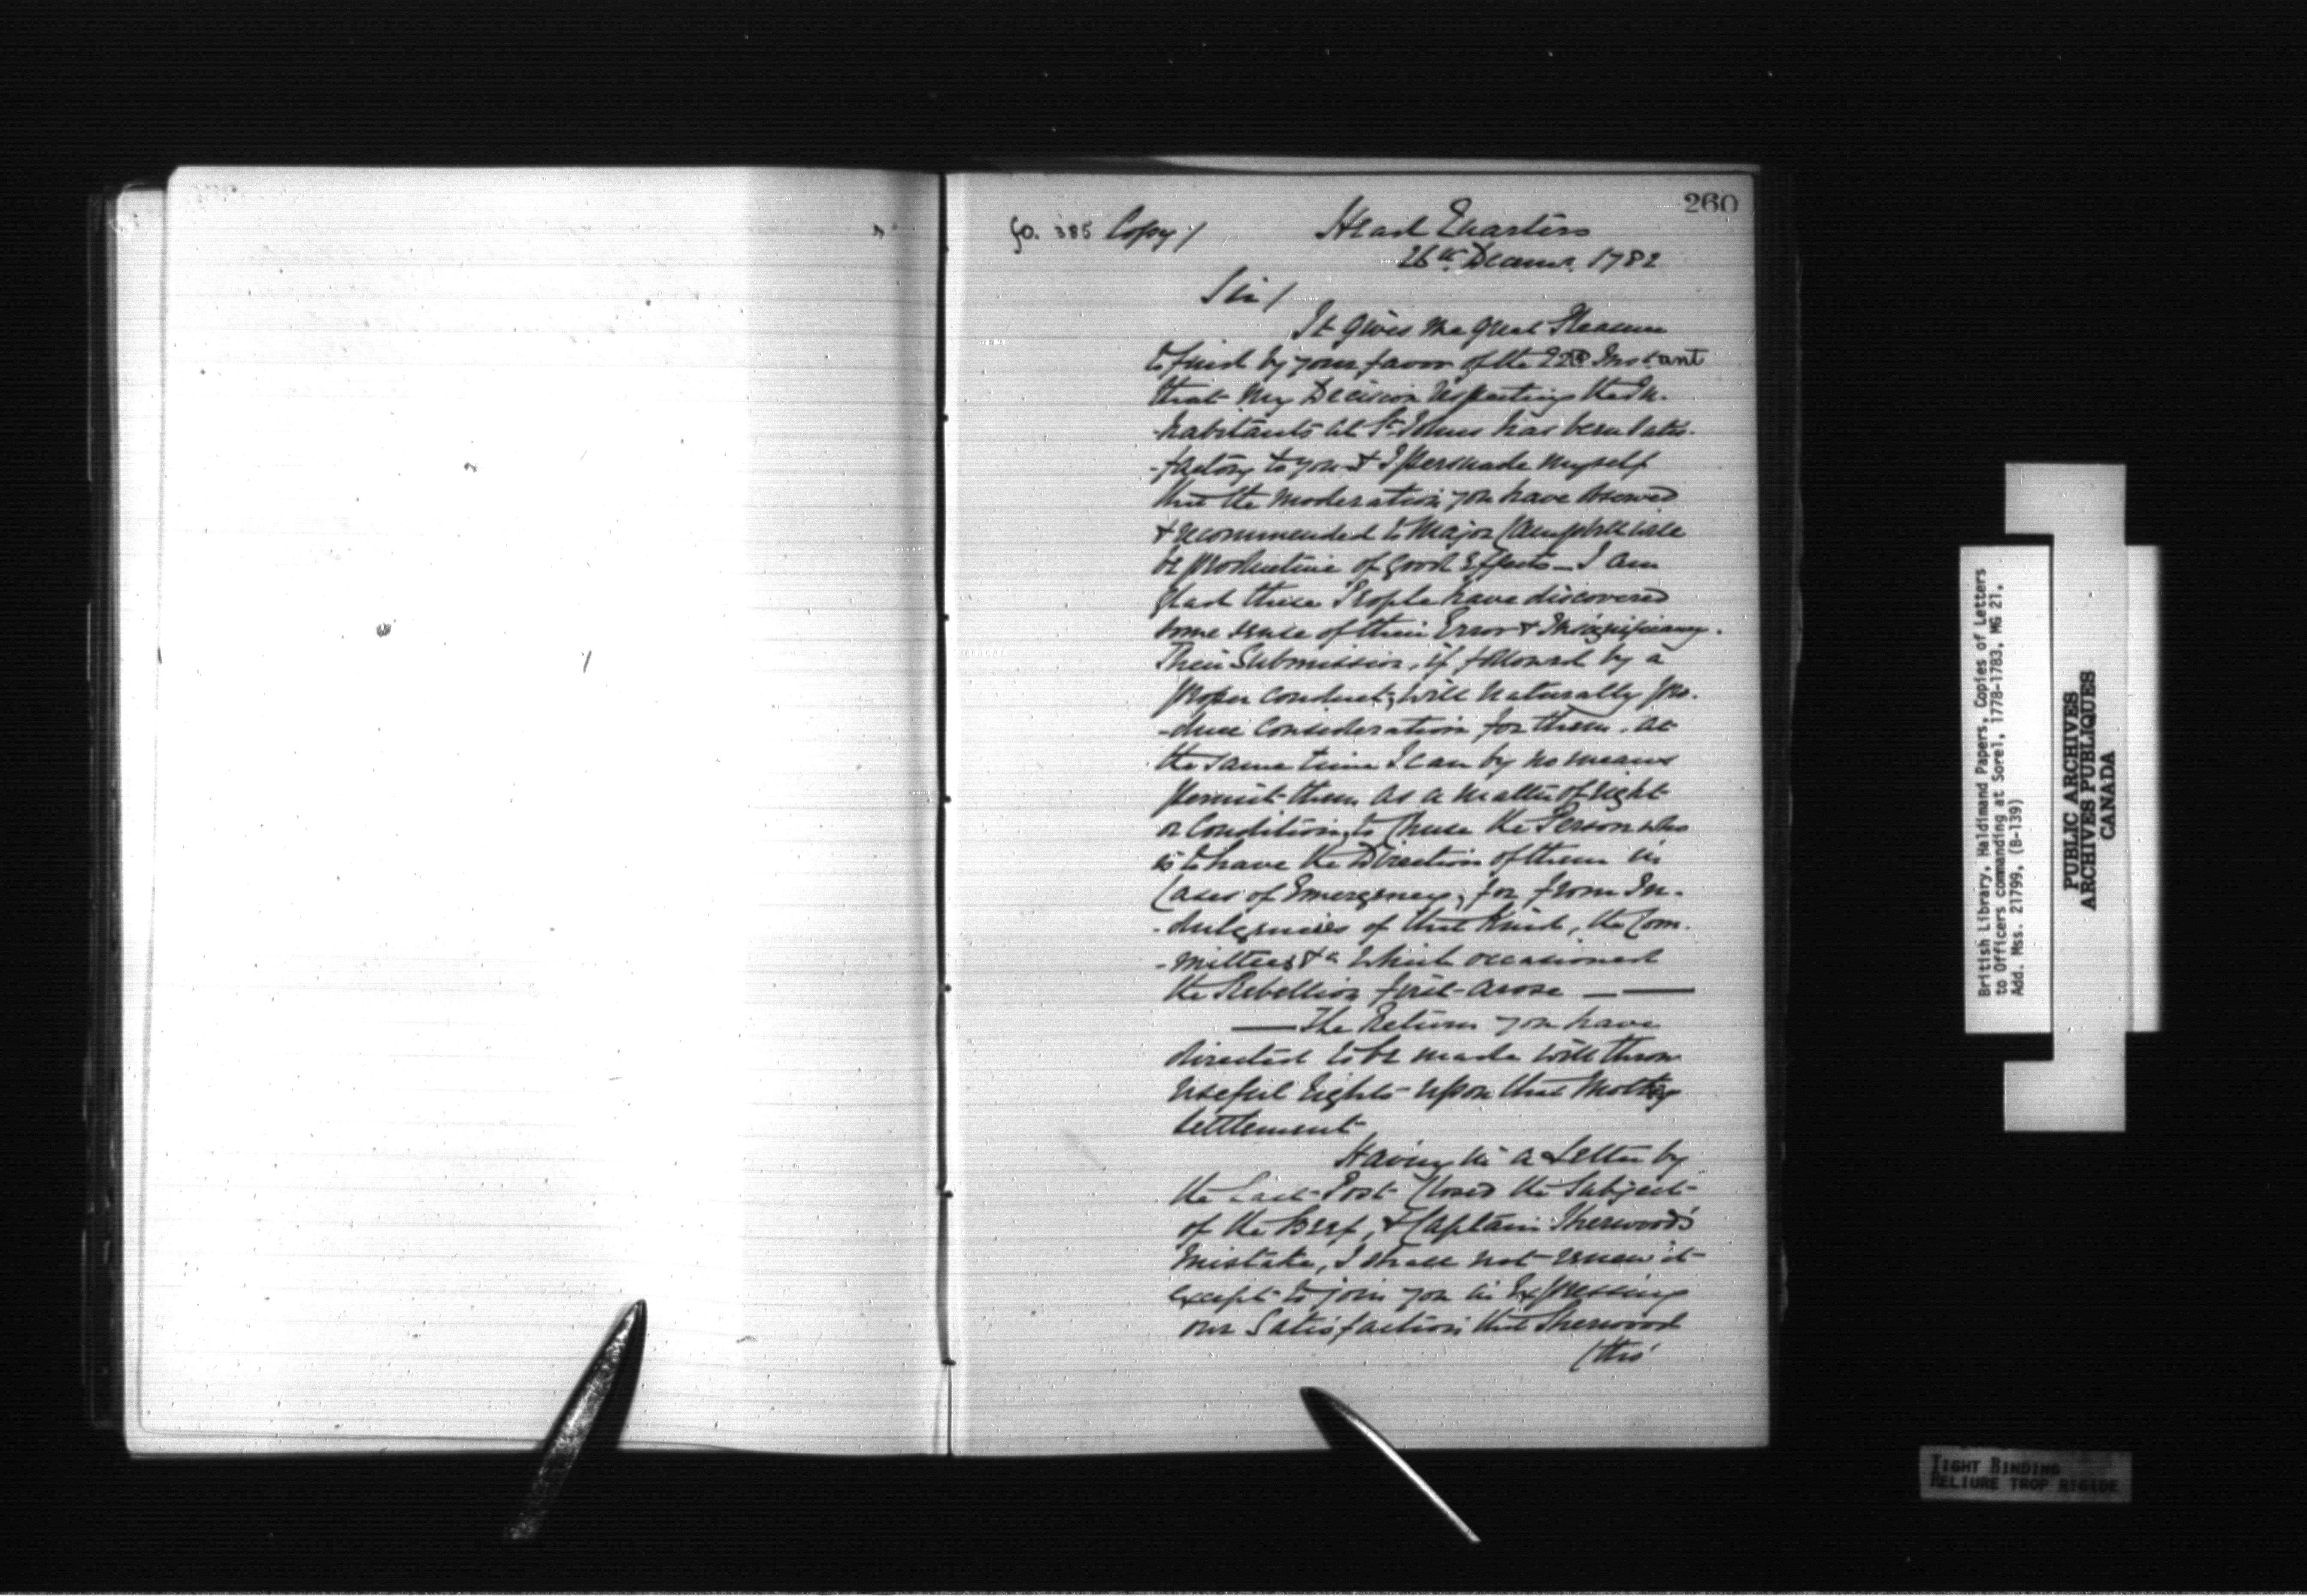 260
fo. 385 Copy/ Head Quarters
26th Decemr. 1782
Sir/
It gives me great Pleasure
to find by your favor of the 22d Instant
that my Decision respecting the In-
-habitants at St. Johns has been satis-
-factory to you & I persuade myself
that the moderation you have shewed
& recommended to Major Campbell will
be productive of good Effects - I am
glad these People have discovered
some sense of their Error & Insignificancy.
Their Submission, if followed by a
proper conduct, will naturally pro-
-duce consideration for them. at
the same time I can by no means
permit them as a matter of right
or Condition, to Chuse the Person who
is to have the Direction of them in
Cases of Emergency, for from In-
-dulgencies of that Kind, the Com-
-mittees &a which occasioned
the Rebellion first arose — —
— The Return you have
directed to be made will throw
useful lights upon that Motley
Settlement
Having in a Letter by
the Last Post Closed the Subject
of the Beef, & Captain Sherwood's
mistake, I shall not renew it
except to join you in Expressing
our Satisfaction that Sherwood
(tho'
British Library, Haldimand Papers, Copies of Letters
to Officers commanding at Sorel, 1778-1783, MG 21,
Add. Mss. 21799, (B-139)
PUBLIC ARCHIVES
ARCHIVES PUBLIQUES
CANADA
TIGHT BINDING
RELIURE TROP RIGIDE